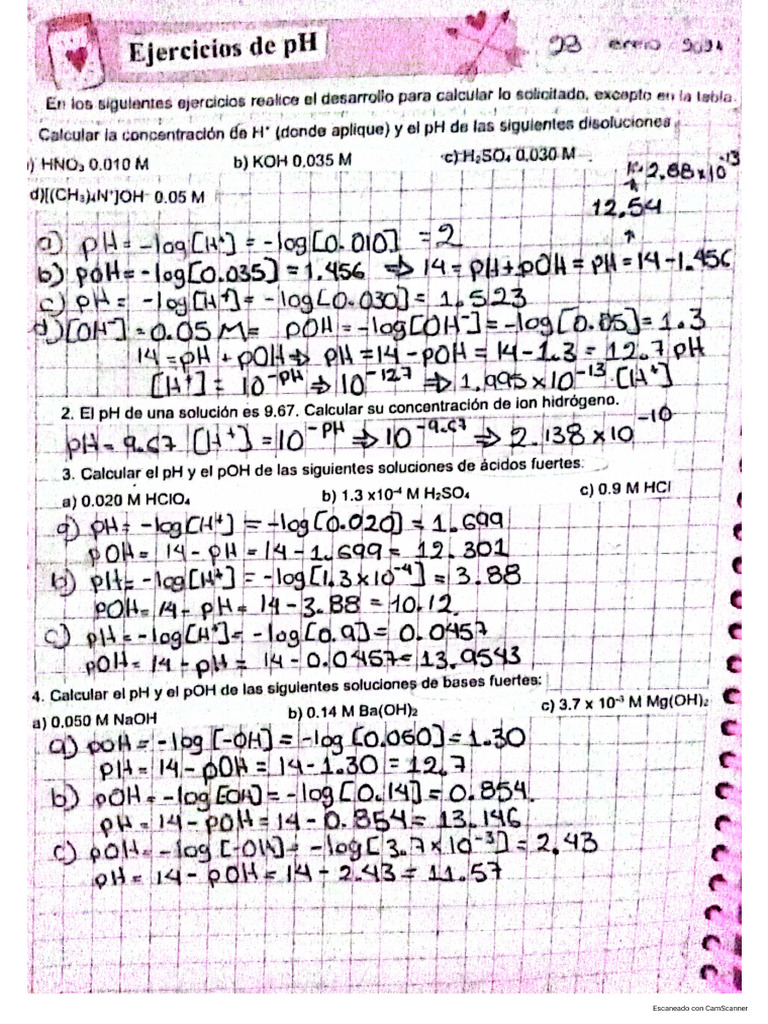 Ejercicios de pH
23 enero
En los siguientes ejercicios realice el desarrollo para calcular lo solicitado, excepto en la tabla.
Calcular la concentración de H⁺ (donde aplique) y el pH de las siguientes disoluciones
) HNO₃ 0.010 M b) KOH 0.035 M c) H₂SO₄ 0.030 M
2.88x10⁻¹³
d)[(CH₃)₄N⁺]OH⁻ 0.05 M
12.54
a) pH = -log[H⁺] = -log[0.010] = 2
b) pOH = -log[0.035] = 1.456 ⇒ 14 = pH + pOH = pH = 14 - 1.456
c) pH = -log[H⁺] = -log[0.030] = 1.523
d) [OH⁻] = 0.05 M = pOH = -log[OH⁻] = -log[0.05] = 1.3
14 = pH + pOH ⇒ pH = 14 - pOH = 14 - 1.3 = 12.7 pH
[H⁺] = 10⁻ᵖᴴ ⇒ 10⁻¹²·⁷ ⇒ 1.995 x 10⁻¹³ [H⁺]
2. El pH de una solución es 9.67. Calcular su concentración de ion hidrógeno.
pH = 9.67 [H⁺] = 10⁻ᵖᴴ ⇒ 10⁻⁹·⁶⁷ ⇒ 2.138 x 10⁻¹⁰
3. Calcular el pH y el pOH de las siguientes soluciones de ácidos fuertes:
a) 0.020 M HClO₄ b) 1.3 x10⁻⁴ M H₂SO₄ c) 0.9 M HCl
a) pH = -log[H⁺] = -log[0.020] = 1.699
pOH = 14 - pH = 14 - 1.699 = 12.301
b) pH = -log[H⁺] = -log[1.3x10⁻⁴] = 3.88
pOH = 14 - pH = 14 - 3.88 = 10.12.
c) pH = -log[H⁺] = -log[0.9] = 0.0457
pOH = 14 - pH = 14 - 0.0457 = 13.9543
4. Calcular el pH y el pOH de las siguientes soluciones de bases fuertes:
a) 0.050 M NaOH b) 0.14 M Ba(OH)₂ c) 3.7 x 10⁻³ M Mg(OH)₂
a) pOH = -log[-OH] = -log[0.050] = 1.30
pH = 14 - pOH = 14 - 1.30 = 12.7
b) pOH = -log[-OH] = -log[0.14] = 0.854.
pH = 14 - pOH = 14 - 0.854 = 13.146
c) pOH = -log[-OH] = -log[3.7x10⁻³] = 2.43
pH = 14 - pOH = 14 - 2.43 = 11.57
Escaneado con CamScanner